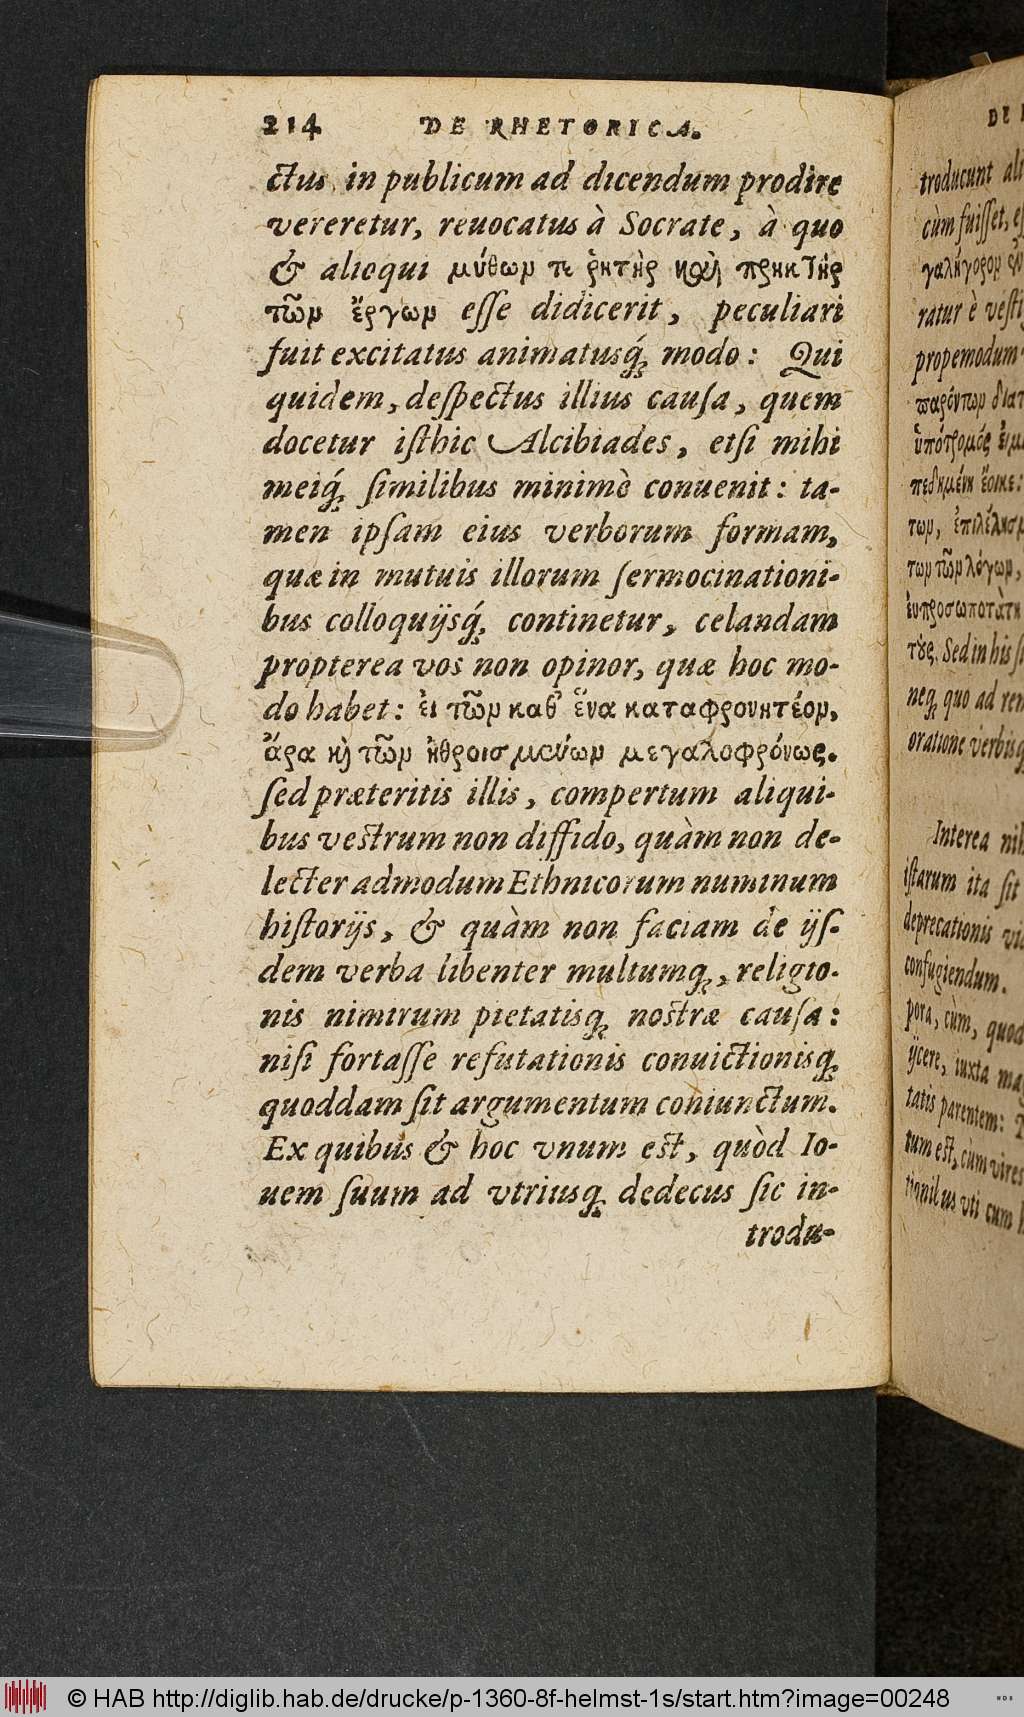 214 DE RHETORICA.
ctus in publicum ad dicendum prodire
vereretur, reuocatus à Socrate, à quo
& alioqui μύθων τε ῥητὴρ καὶ πρηκτὴρ
τῶν ἔργων esse didicerit, peculiari
fuit excitatus animatusq́; modo: Qui
quidem, despectus illius causa, quem
docetur isthic Alcibiades, etsi mihi
meiq́; similibus minimè conuenit: ta-
men ipsam eius verborum formam,
quæ in mutuis illorum sermocinationi-
bus colloquijsq́; continetur, celandam
propterea vos non opinor, quæ hoc mo-
do habet: εἰ τῶν καθ' ἕνα καταφρονητέον,
ἄρα κὴ τῶν ἠθροισμένων μεγαλοφρόνως.
sed præteritis illis, compertum aliqui-
bus vestrum non diffido, quàm non de-
lecter admodum Ethnicorum numinum
historijs, & quàm non faciam de ijs-
dem verba libenter multumq;, religio-
nis nimirum pietatisq; nostræ causa:
nisi fortasse refutationis conuictionisq;
quoddam sit argumentum coniunctum.
Ex quibus & hoc vnum est, quòd Io-
uem suum ad vtriusq; dedecus sic in-
trodu-
DE
troducunt
cùm fuisset,
ratur è
propemodum
ὑπότρομός
πεδημένη ἔοικε:
των,
των τῶν λόγων,
τȣς. Sed in his
neq; quo ad
oratione
Interea
istarum ita sit
deprecationis
confugiendum.
pora, cùm, quod
ijcere, iuxta
tatis parentem:
tum est, cùm vires
uti cum
© HAB http://diglib.hab.de/drucke/p-1360-8f-helmst-1s/start.htm?image=00248